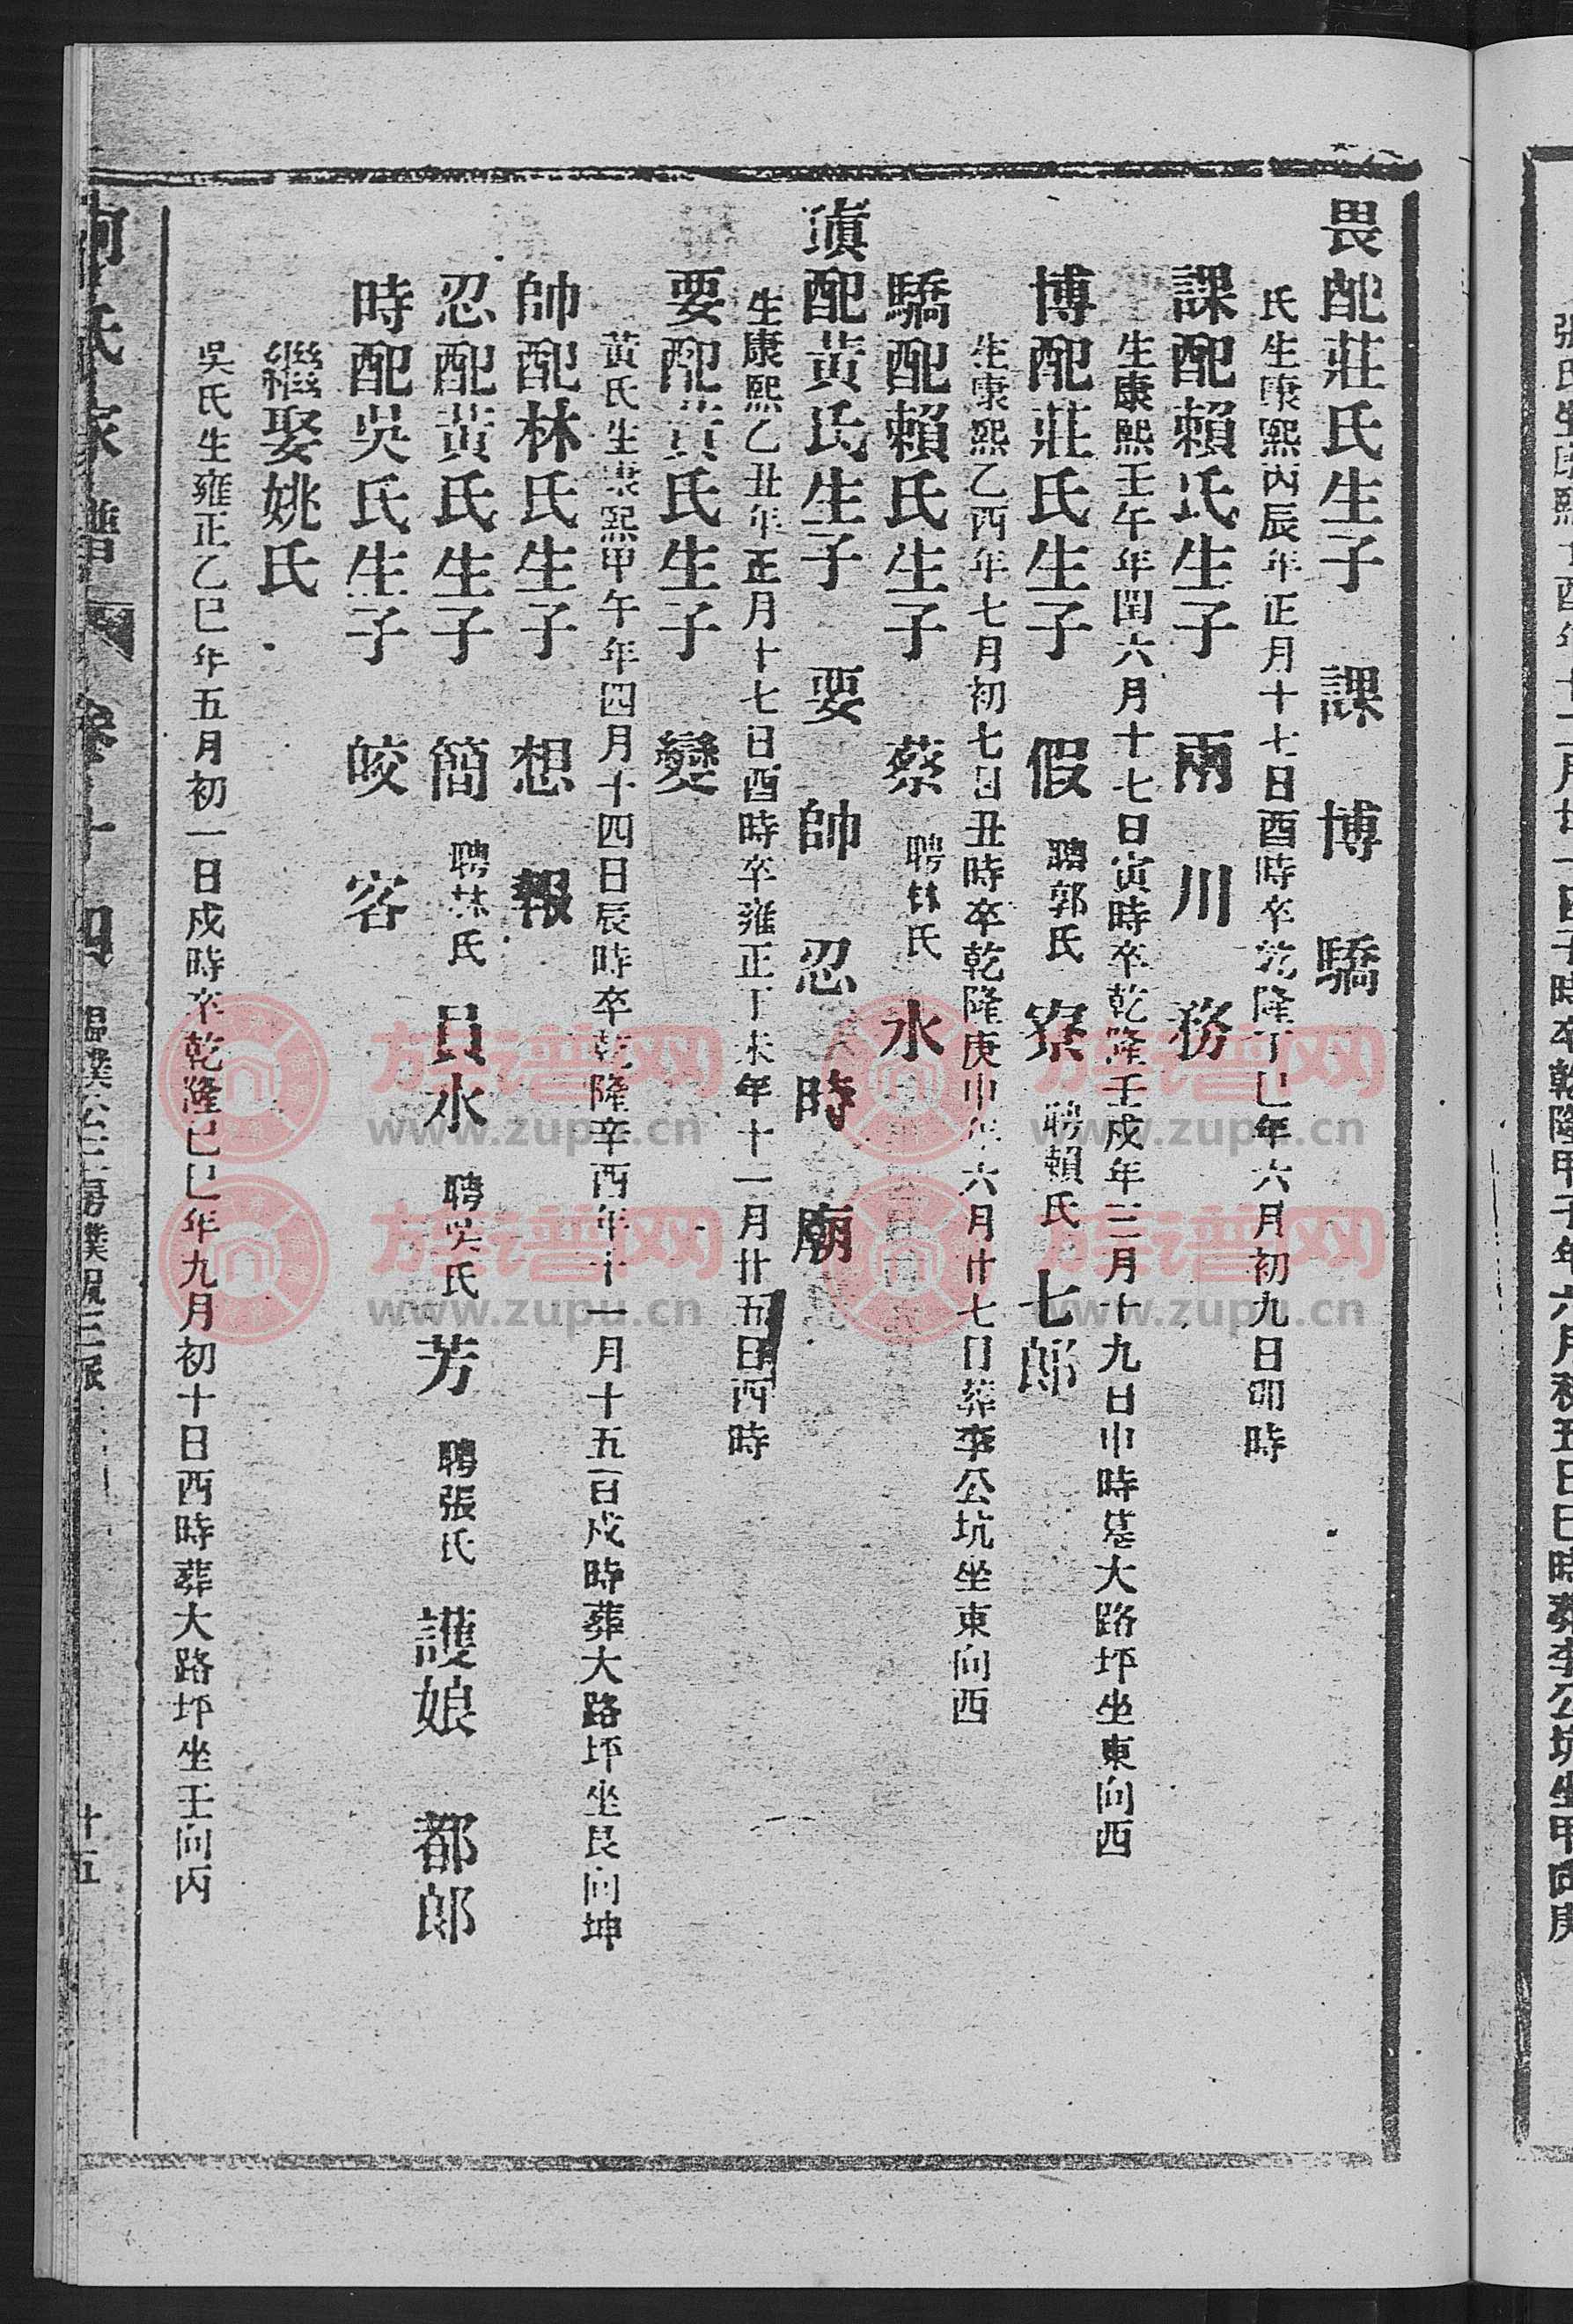 畏配莊氏生子 課 博 驕
氏生康熙丙辰年正月十七日酉時卒乾隆丁巳年六月初九日卯時
課配賴氏生子 兩 川 務
生康熙壬午年閏六月十七日寅時卒乾隆壬戌年三月十九日申時墓大路坪坐東向西
博配莊氏生子 假 聘郭氏 寮 聘賴氏 七郎
生康熙乙酉年七月初七日丑時卒乾隆庚申年六月廿七日葬李公坑坐東向西
驕配賴氏生子 蔡 聘林氏 水
配黃氏生子 要 帥 忍 時 廟
生康熙乙丑年正月十七日酉時卒雍正丁未年十一月廿五日酉時
要配黃氏生子 變
黃氏生康熙甲午年四月十四日辰時卒乾隆辛酉年十一月十五日戌時葬大路坪坐艮向坤
帥配林氏生子 想 報
忍配黃氏生子 簡 聘林氏 員水 聘吳氏 芳 聘張氏 護娘 都郎
時配吳氏生子 皎 容
繼娶姚氏
吳氏生雍正乙巳年五月初一日戌時卒乾隆己巳年九月初十日酉時葬大路坪坐壬向丙
氏家譜 卷十四 廿五
族谱网
www.zupu.cn
族谱网
www.zupu.cn
族谱网
www.zupu.cn
族谱网
www.zupu.cn